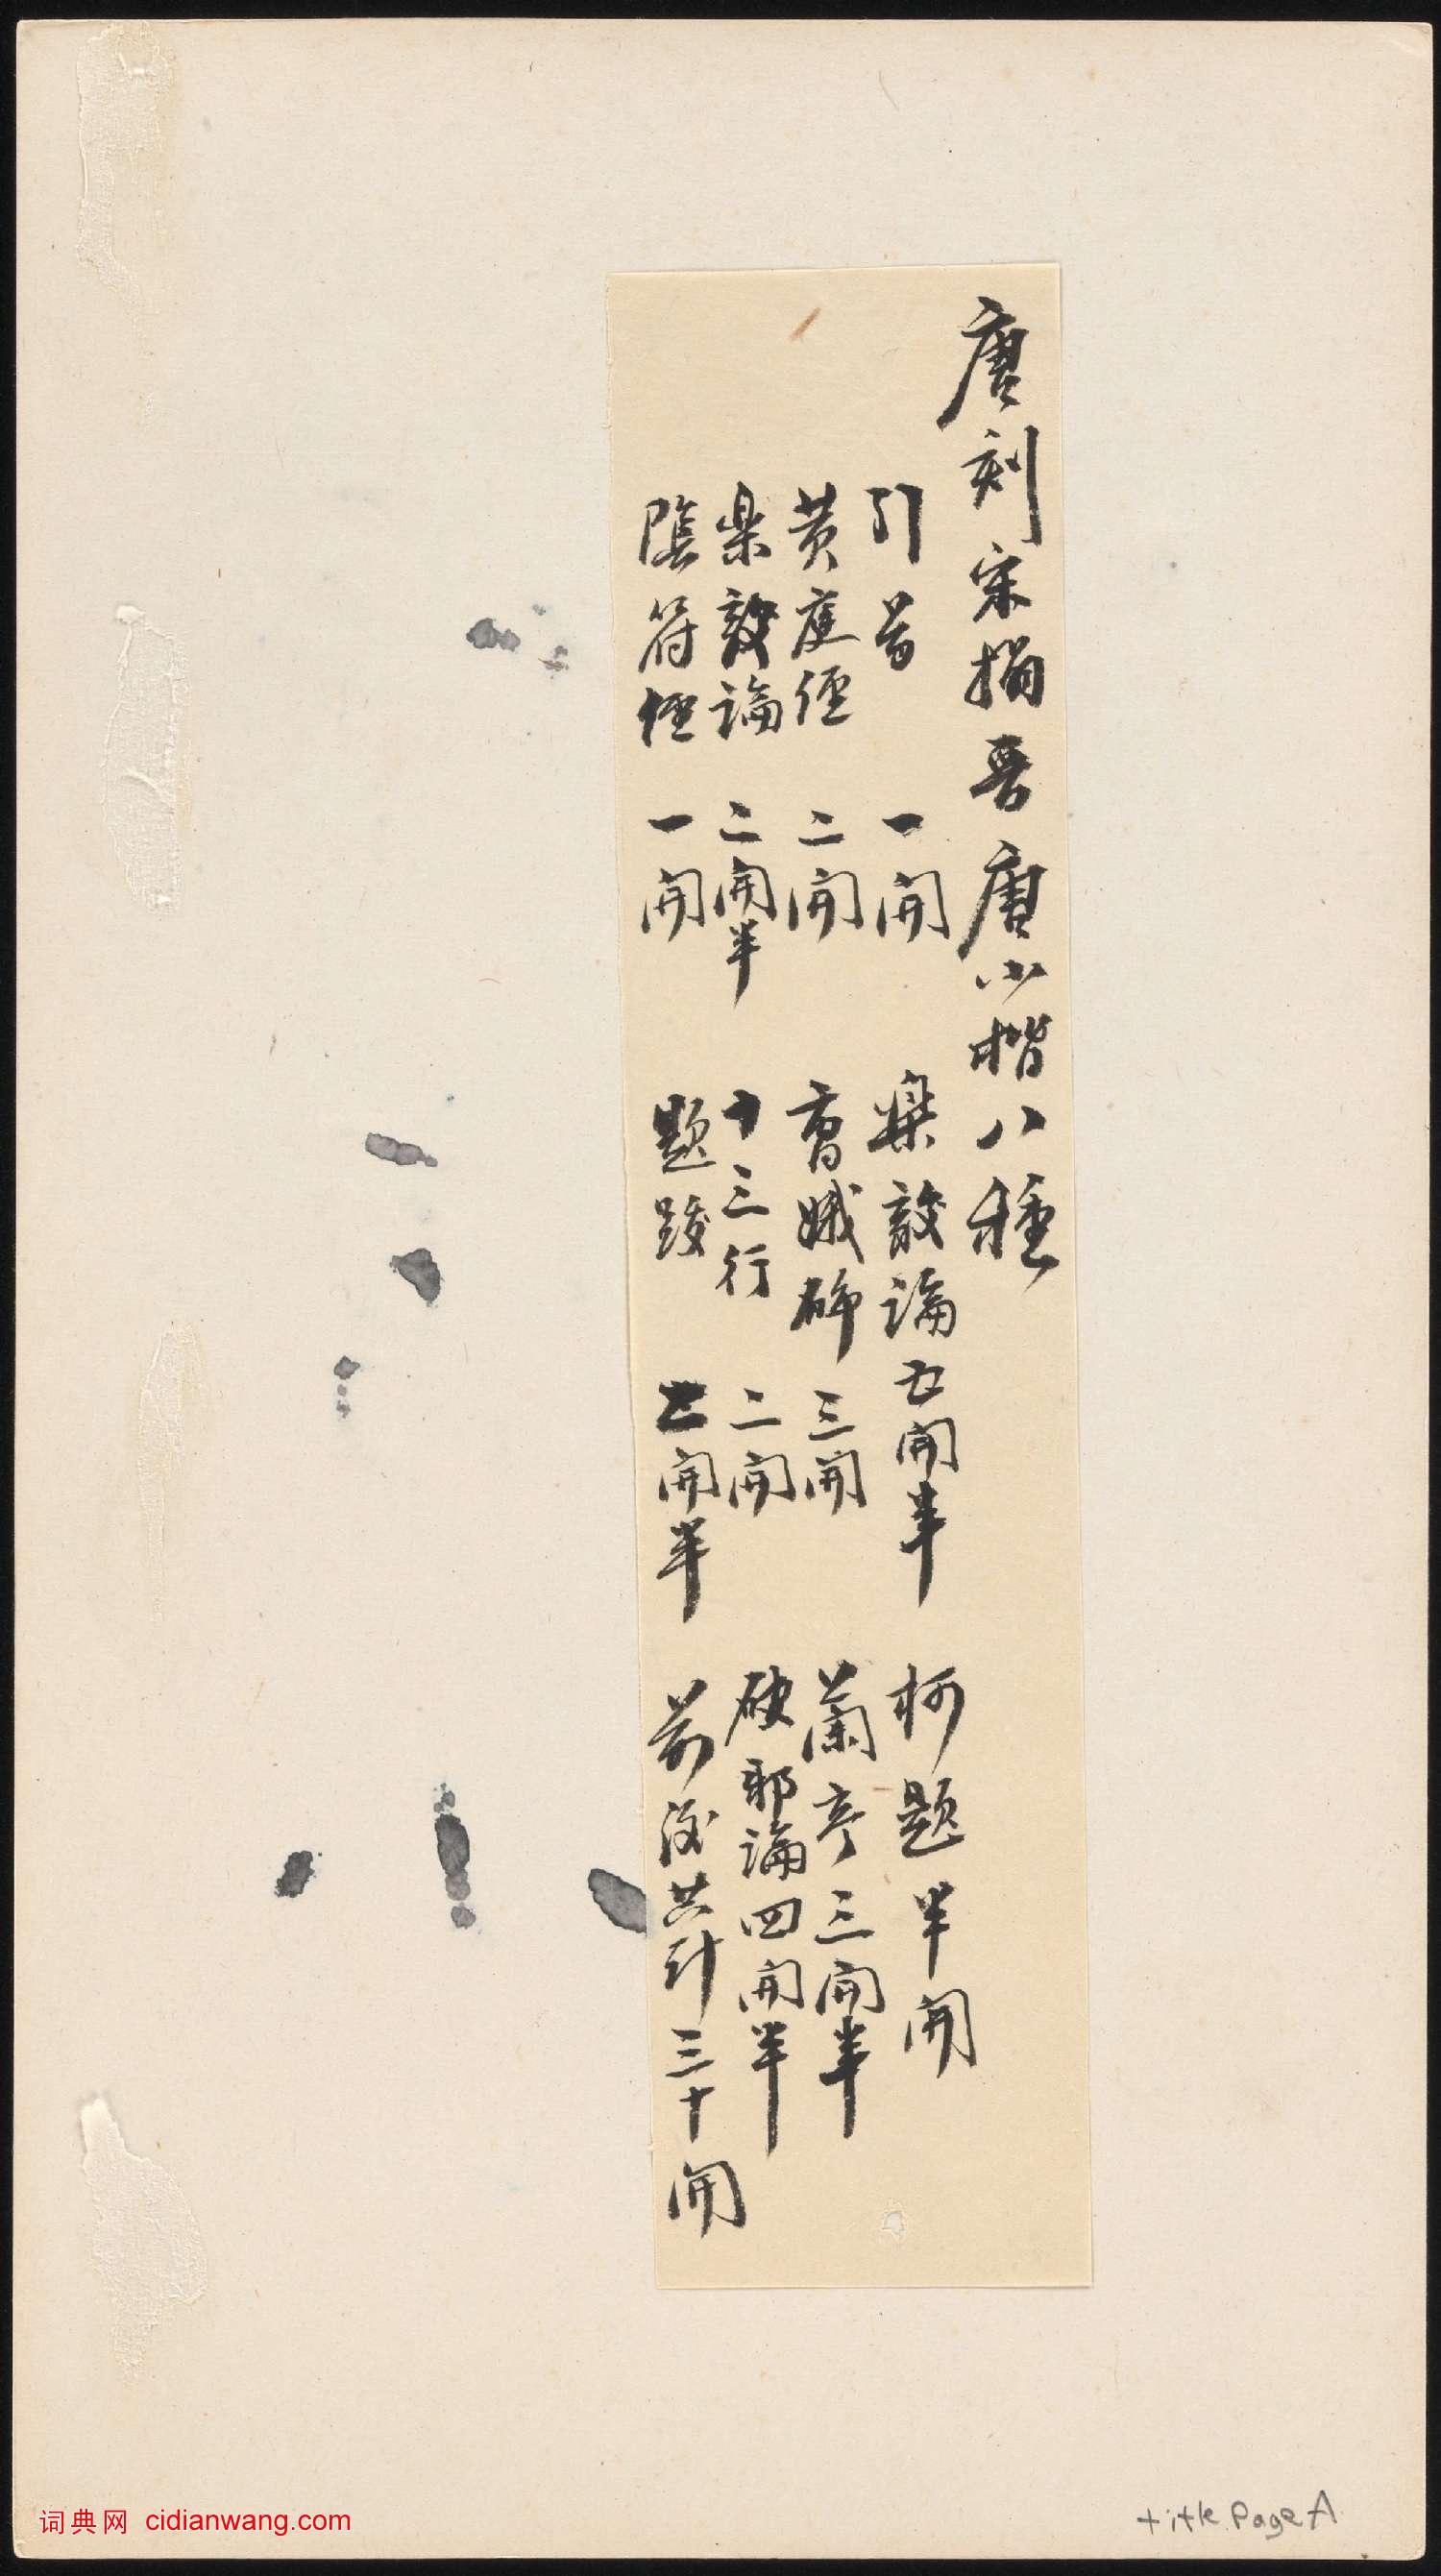 唐刻宋搨晉唐小楷八種
引首 一開 樂毅論 五開半 柯題半開
黄庭經 二開 曹娥碑 三開 蘭亭三開半
樂毅論 二開半 十三行 二開 破邪論四開半
陰符經 一開 題跋 開半 前後共計三十開
词典网 cidianwang.com
title Page A